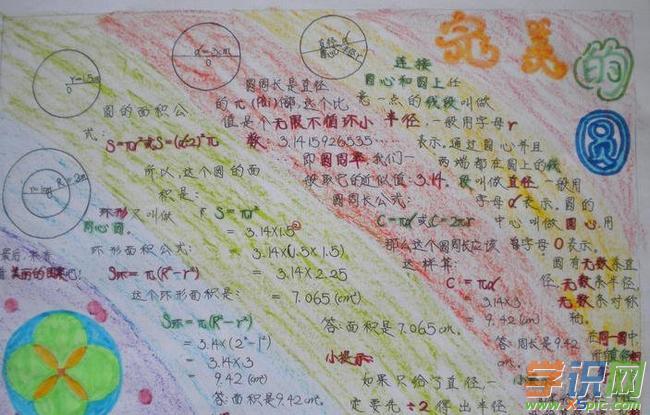 完美的圆
d=3cm
O
r=1.5m
O
r=1cm
R=2cm
圆的面积公
式:
S=πr²或S=(d÷2)²π
所以,这个圆的面
积是:
S=πr²
=3.14×1.5²
=3.14×(1.5×1.5)
=3.14×2.25
=7.065(cm²)
答:面积是7.065cm².
环形又叫做
同心圆.
环形面积公式:
S环=π(R²-r²)
这个环形面积是:
S环=π(R²-r²)
=3.14×(2²-1²)
=3.14×3
=9.42(cm²)
答:面积是9.42cm².
圆周长是直径
的π(pài)倍,这个比
值是个无限不循环小
数:3.1415926535……
即圆周率.我们一
般取它的近似值:3.14.
圆周长公式:
C=πd或C=2πr
那么这个圆周长应该
这样算:
C=πd
=3.14×3
=9.42(cm)
答:周长是9.42
cm.
连接
圆心和圆上任
意一点的线段叫做
半径,一般用字母r
表示.通过圆心并且
两端都在圆上的线
段叫做直径,一般用
字母d表示.圆的
中心叫做圆心.用
字母O表示.
圆有无数条直
径,无数条半径,
无数条对称
轴.
在同一圆中,
最后,来看
看美丽的图案吧!
小提示:
如果只给了直径,一
定要先÷2得出半径
学识网
www.xspic.com